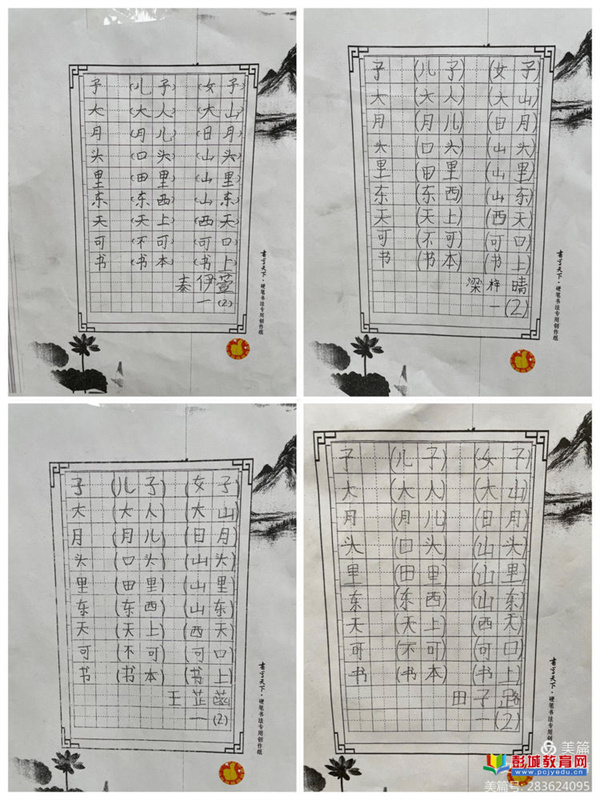 子 (儿子) (女子)
大 (大人) (大山)
月 (月儿) (日月)
头 (口头) (山头)
里 (田里) (山里)
东 (东西) (山东)
天 (天上) (西天)
可 (不可) (可口)
书 (书本) (书上)
秦伊萱
一(2)
硬笔书法专用创作纸
子 (儿子) (女子)
大 (大人) (大山)
月 (月儿) (日月)
头 (口头) (山头)
里 (田里) (山里)
东 (东西) (山东)
天 (天上) (西天)
可 (不可) (可口)
书 (书本) (书上)
梁梓晴
一(2)
硬笔书法专用创作纸
子 (儿子) (女子)
大 (大人) (大山)
月 (月儿) (日月)
头 (口头) (山头)
里 (田里) (山里)
东 (东西) (山东)
天 (天上) (西天)
可 (不可) (可口)
书 (书本) (书上)
王芷菡
一(2)
硬笔书法专用创作纸
子 (儿子) (女子)
大 (大人) (大山)
月 (月儿) (日月)
头 (口头) (山头)
里 (田里) (山里)
东 (东西) (山东)
天 (天上) (西天)
可 (不可) (可口)
书 (书本) (书上)
田子路
一(2)
硬笔书法专用创
美篇
彭城教育网
www.pcjyedu.cn
283624095